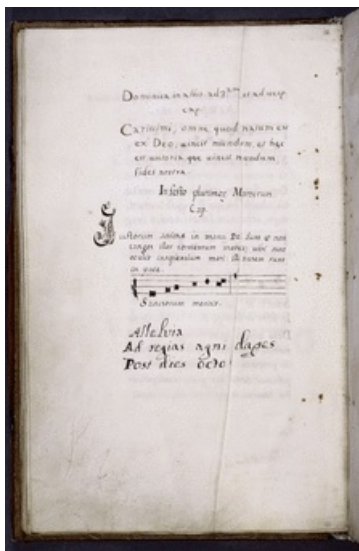 Dominica in albis. ad 3am et ad vesp.
cap.
Carissimi, omne quod natum est
ex Deo, vincit mundum, et hæc
est victoria, quæ vincit mundum,
fides nostra.
In festo plurimor Martyrum
Cap.
Justorum animæ in manu Dei sunt et non
tanget illos tormentum mortis; visi sunt
oculis insipientium mori illi autem sunt
in pace.
Sanctorum meritis.
Alleluia
Ad regias agni dapes
Post dies octo